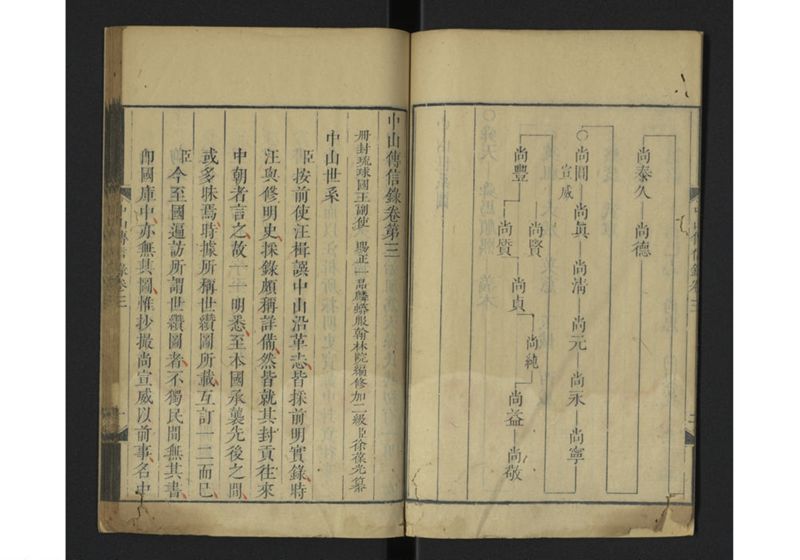 尚泰久 尚德
○尚圓 尚眞 尚淸 尚元 尚永 尚寧
宣威
尚賢 尚純
尚豐 尚質 尚貞 尚益 尚敬
中山傳信錄卷第三
冊封琉球國王副使 賜正一品麟蟒服翰林院編修加二級臣徐葆光纂
中山世系
臣按前使汪楫譔中山沿革志皆採前明實錄時
汪與修明史採錄頗稱詳備然皆就其封貢往來
中朝者言之故年明悉至本國承襲先後之間
或多昧焉時據所稱世纘圖所載互訂一二而已
臣今至國遍訪所謂世纘圖者不獨民間無其書
卽國庫中亦無其圖惟抄撮尚宣威以前事名中
中山傳信錄卷三 一